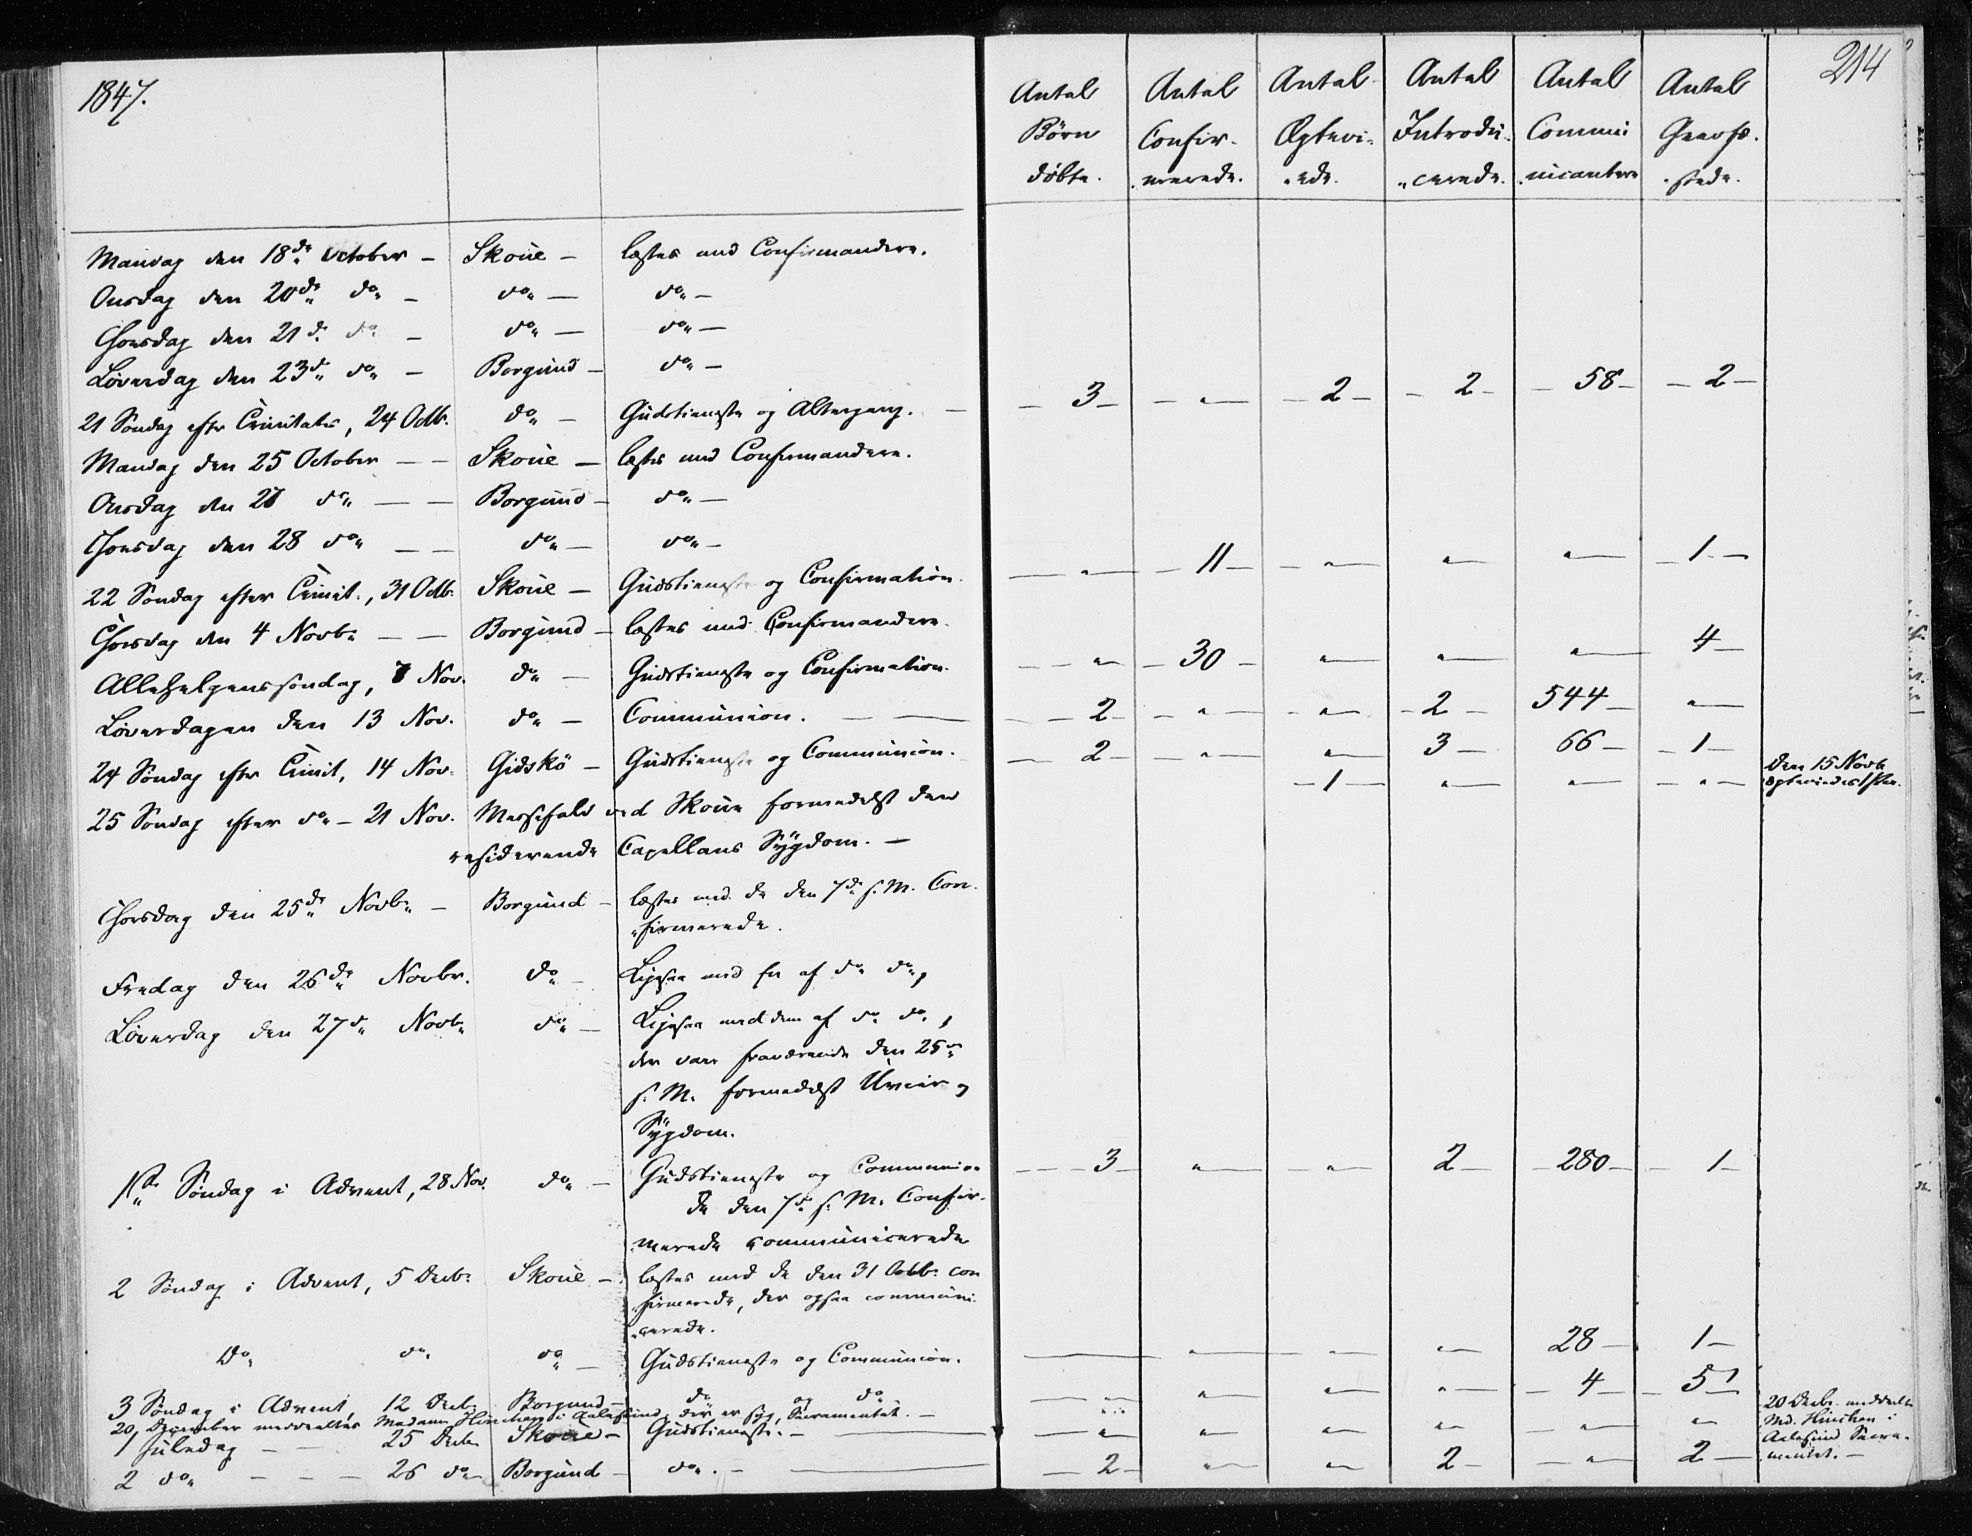 1847.
214
Antal Børn døbte. Antal Confir-merede. Antal Ægtevi-ede. Antal Introdu-cerede. Antal Communicantere Antal Gravfæ-stede.
Mandag den 18de October – Skoue – læstes med Confirmandere.
Onsdag den 20de do – do – do –
Thorsdag den 21de do – do – do –
Løverdag den 23de do – Borgund – do –
21 Søndag efter Trinitatis, 24 Octb. do – Gudstieneste og Altergang. – 3 – " – 2 – 2 – 58 – 2 –
Mandag den 25 October – – Skoue – læstes med Confirmandere.
Onsdag den 27 do – – Borgund – do –
Thorsdag den 28 do – – do – do –
22 Søndag efter Trinit., 31 Octb. Skoue – Gudstieneste og Confirmation. – " – 11 – " – " – " – 1 –
Thorsdag den 4 Novb. – – Borgund – læstes med Confirmandere.
Allehelgenssøndag, 7 Nov. do – Gudstieneste og Confirmation. – " – 30 – " – " – " – 4 –
Løverdagen den 13 Nov. do – Communion. – 2 – " – " – 2 – 544 – " –
24 Søndag efter Trinit, 14 Nov. Gidskö – Gudstieneste og Communion. – 2 – " – " – 3 – 66 – 1 –
– 1 – " – " – " – Den 15 Novb.
25 Søndag efter do – 21 Nov. Messefald ved Skoue formedelst den
residerende Capellans Sygdom. –
Thorsdag den 25de Novbr – Borgund – læstes med de den 7de s. M. Con-
firmerede.
Fredag den 26de Novbr. do – Ligesaa med en af do do,
Løverdag den 27de Novb. do – Ligesaa med dem af do do,
der vare fraværende den 25de
s. M. formedelst Uveir og
Sygdom.
1ste Søndag i Advent, 28 Nov. do – Gudstieneste og Communion – 3 – " – " – 2 – 280 – 1 –
De den 7de s. M. Confir-
merede communicerede
2 Søndag i Advent, 5 Decb. Skoue – læstes med de den 31 Octb. con
firmerede, der ogsaa communi-
cerede.
Do do do – Gudstieneste og Communion. – " – " – " – 28 – 1 –
3 Søndag i Advent, 12 Decb. Borgund – do og do – " – " – " – " – 4 – 5 –
20 December meddeeltes Madame Hinchen i Aalesund, der er syg, Sacramentet. –
20 Decbr. meddeeltes
Md. Hinchen i
Aalesund Sacra-
mentet. –
1 Juledag – 25 Decb. Skoue – Gudstieneste. – " – " – " – " – " – " –
2 do – – – 26 do – Borgund – do. – 2 – " – " – 2 – " – 2 –